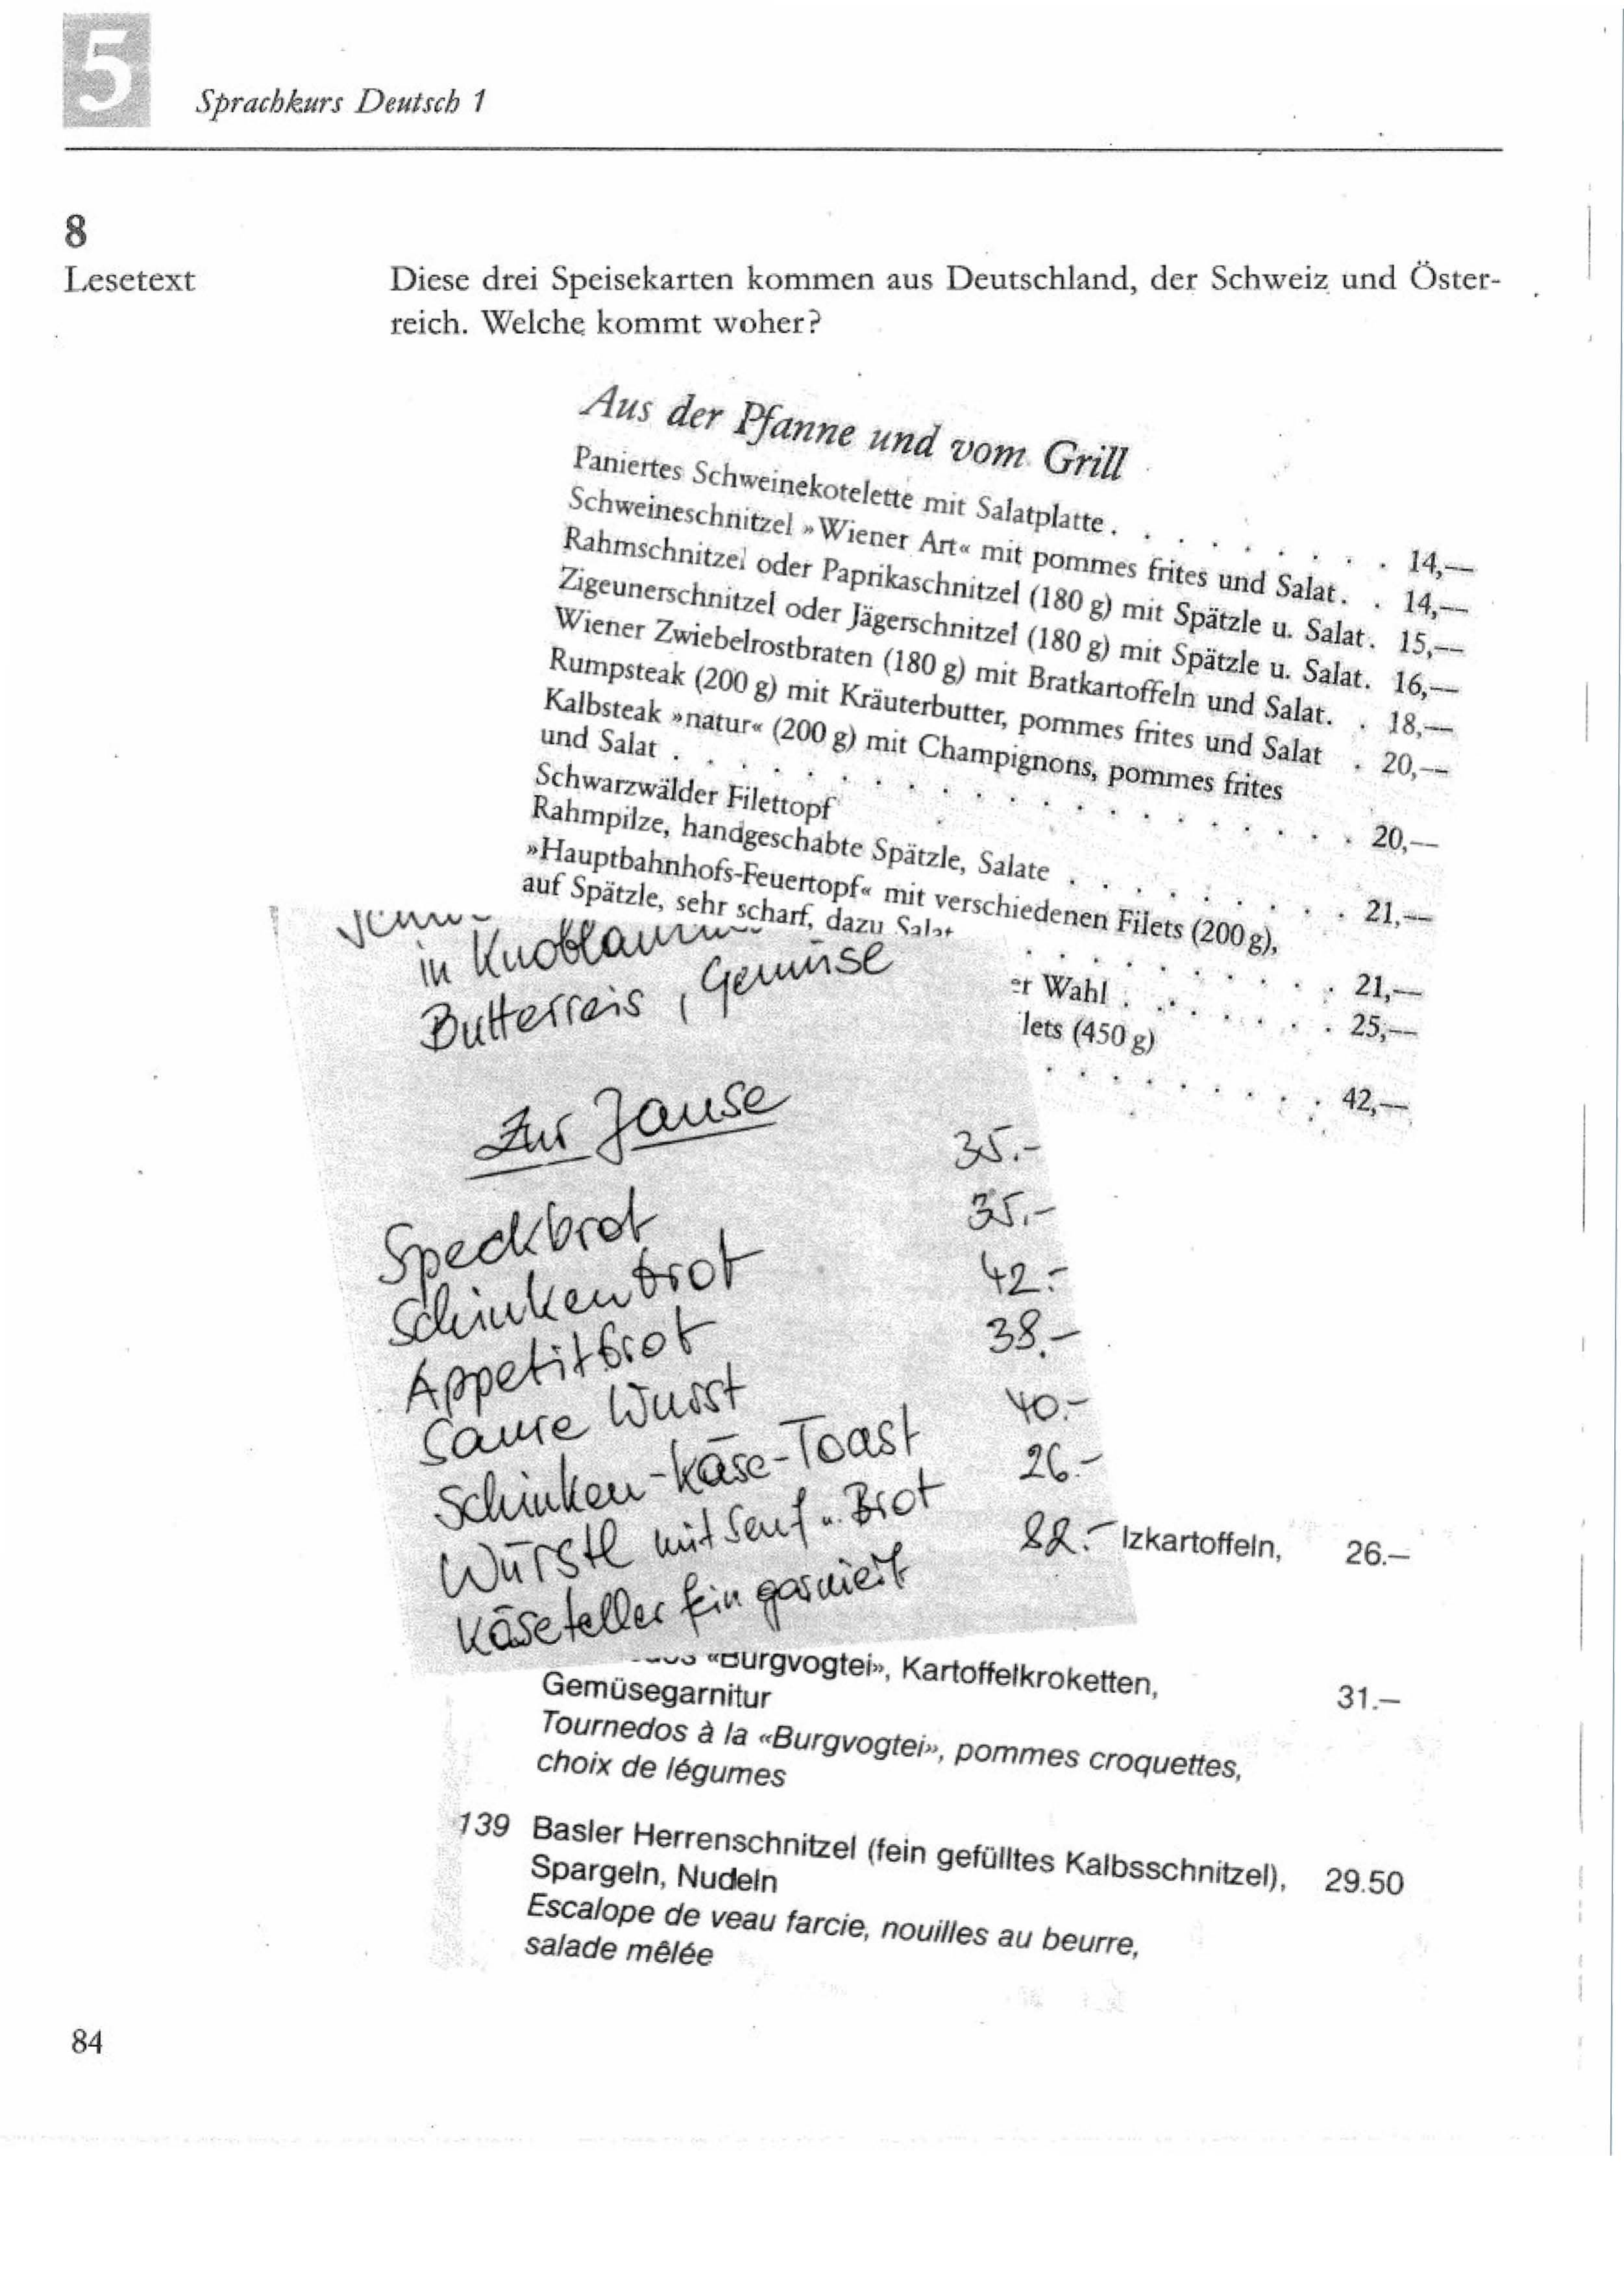 5
Sprachkurs Deutsch 1
8
Lesetext
Diese drei Speisekarten kommen aus Deutschland, der Schweiz und Öster-
reich. Welche kommt woher?
Aus der Pfanne und vom Grill
Paniertes Schweinekotelette mit Salatplatte . . . . . . . . . 14,—
Schweineschnitzel »Wiener Art« mit pommes frites und Salat . . 14,—
Rahmschnitzel oder Paprikaschnitzel (180 g) mit Spätzle u. Salat . 15,—
Zigeunerschnitzel oder Jägerschnitzel (180 g) mit Spätzle u. Salat . 16,—
Wiener Zwiebelrostbraten (180 g) mit Bratkartoffeln und Salat . . 18,—
Rumpsteak (200 g) mit Kräuterbutter, pommes frites und Salat . 20,—
Kalbsteak »natur« (200 g) mit Champignons, pommes frites
und Salat . . . . . . . . . . . . . . . . . . . . 20,—
Schwarzwälder Filettopf
Rahmpilze, handgeschabte Spätzle, Salate . . . . . . . . . 21,—
»Hauptbahnhofs-Feuertopf« mit verschiedenen Filets (200 g),
auf Spätzle, sehr scharf, dazu Salat . . . . . . . . . . 21,—
er Wahl . . . . . . . 25,—
lets (450 g)
. . . . . . . . . 42,—
in
Butterreis, Gemüse
Zur Jause
Speckbrot 35.-
Schinkenbrot 35.-
Appetitbrot 42.-
Saure Wurst 38.-
Schinken-Käse-Toast 40.-
Würstl mit Senf u. Brot 26.-
Käseteller fein garniert 82.-
lzkartoffeln, 26.—
«Burgvogtei», Kartoffelkroketten,
Gemüsegarnitur 31.—
Tournedos à la «Burgvogtei», pommes croquettes,
choix de légumes
139 Basler Herrenschnitzel (fein gefülltes Kalbsschnitzel), 29.50
Spargeln, Nudeln
Escalope de veau farcie, nouilles au beurre,
salade mêlée
84